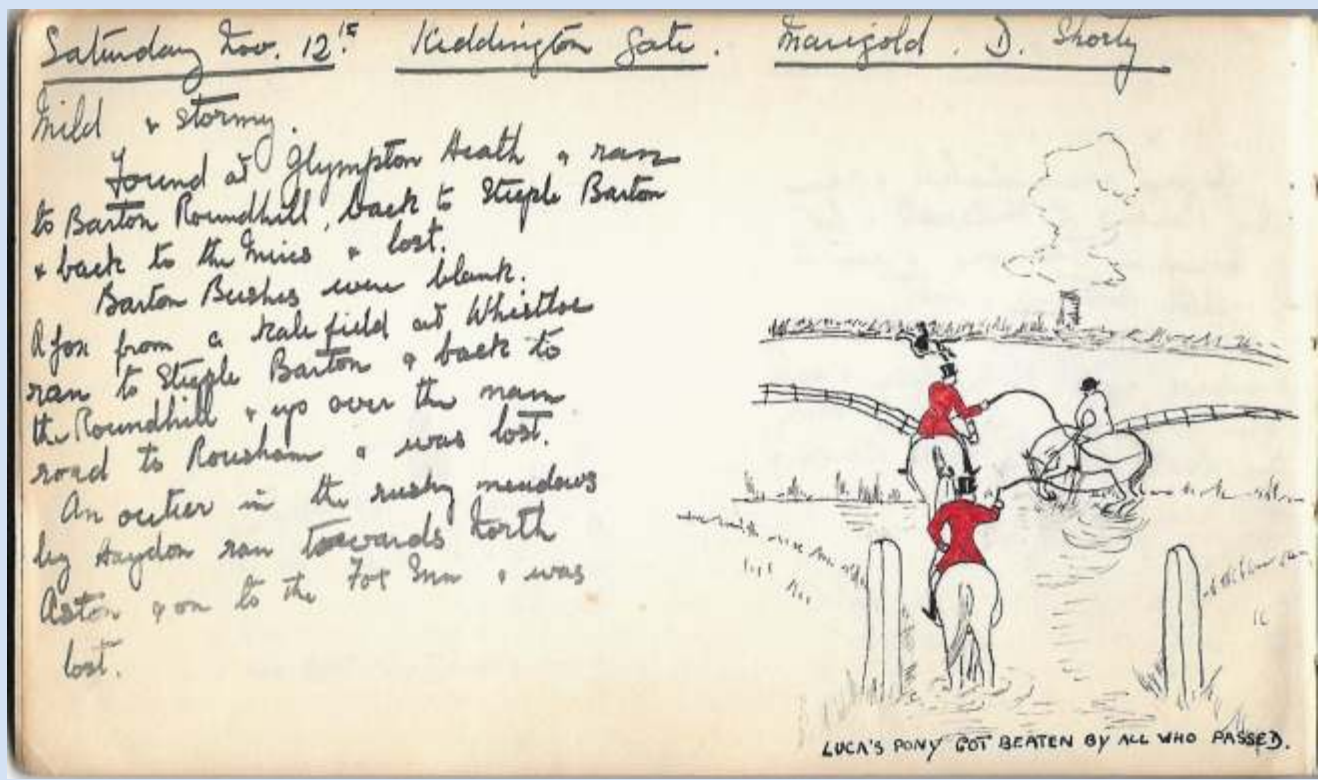 Saturday Nov. 12th Kiddington Gate. Marigold. D. Shorty
Mild & stormy.
Found at Glympton Heath & ran
to Barton Roundhill, back to Steeple Barton
& back to the Mires & lost.
Barton Bushes were blank.
A fox from a kale field at Whistloe
ran to Steeple Barton & back to
the Roundhill & up over the main
road to Rousham & was lost.
An outlier in the rushy meadows
by Haydon ran towards North
Aston & on to the Fox Inn & was
lost.
LUCA'S PONY GOT BEATEN BY ALL WHO PASSED.